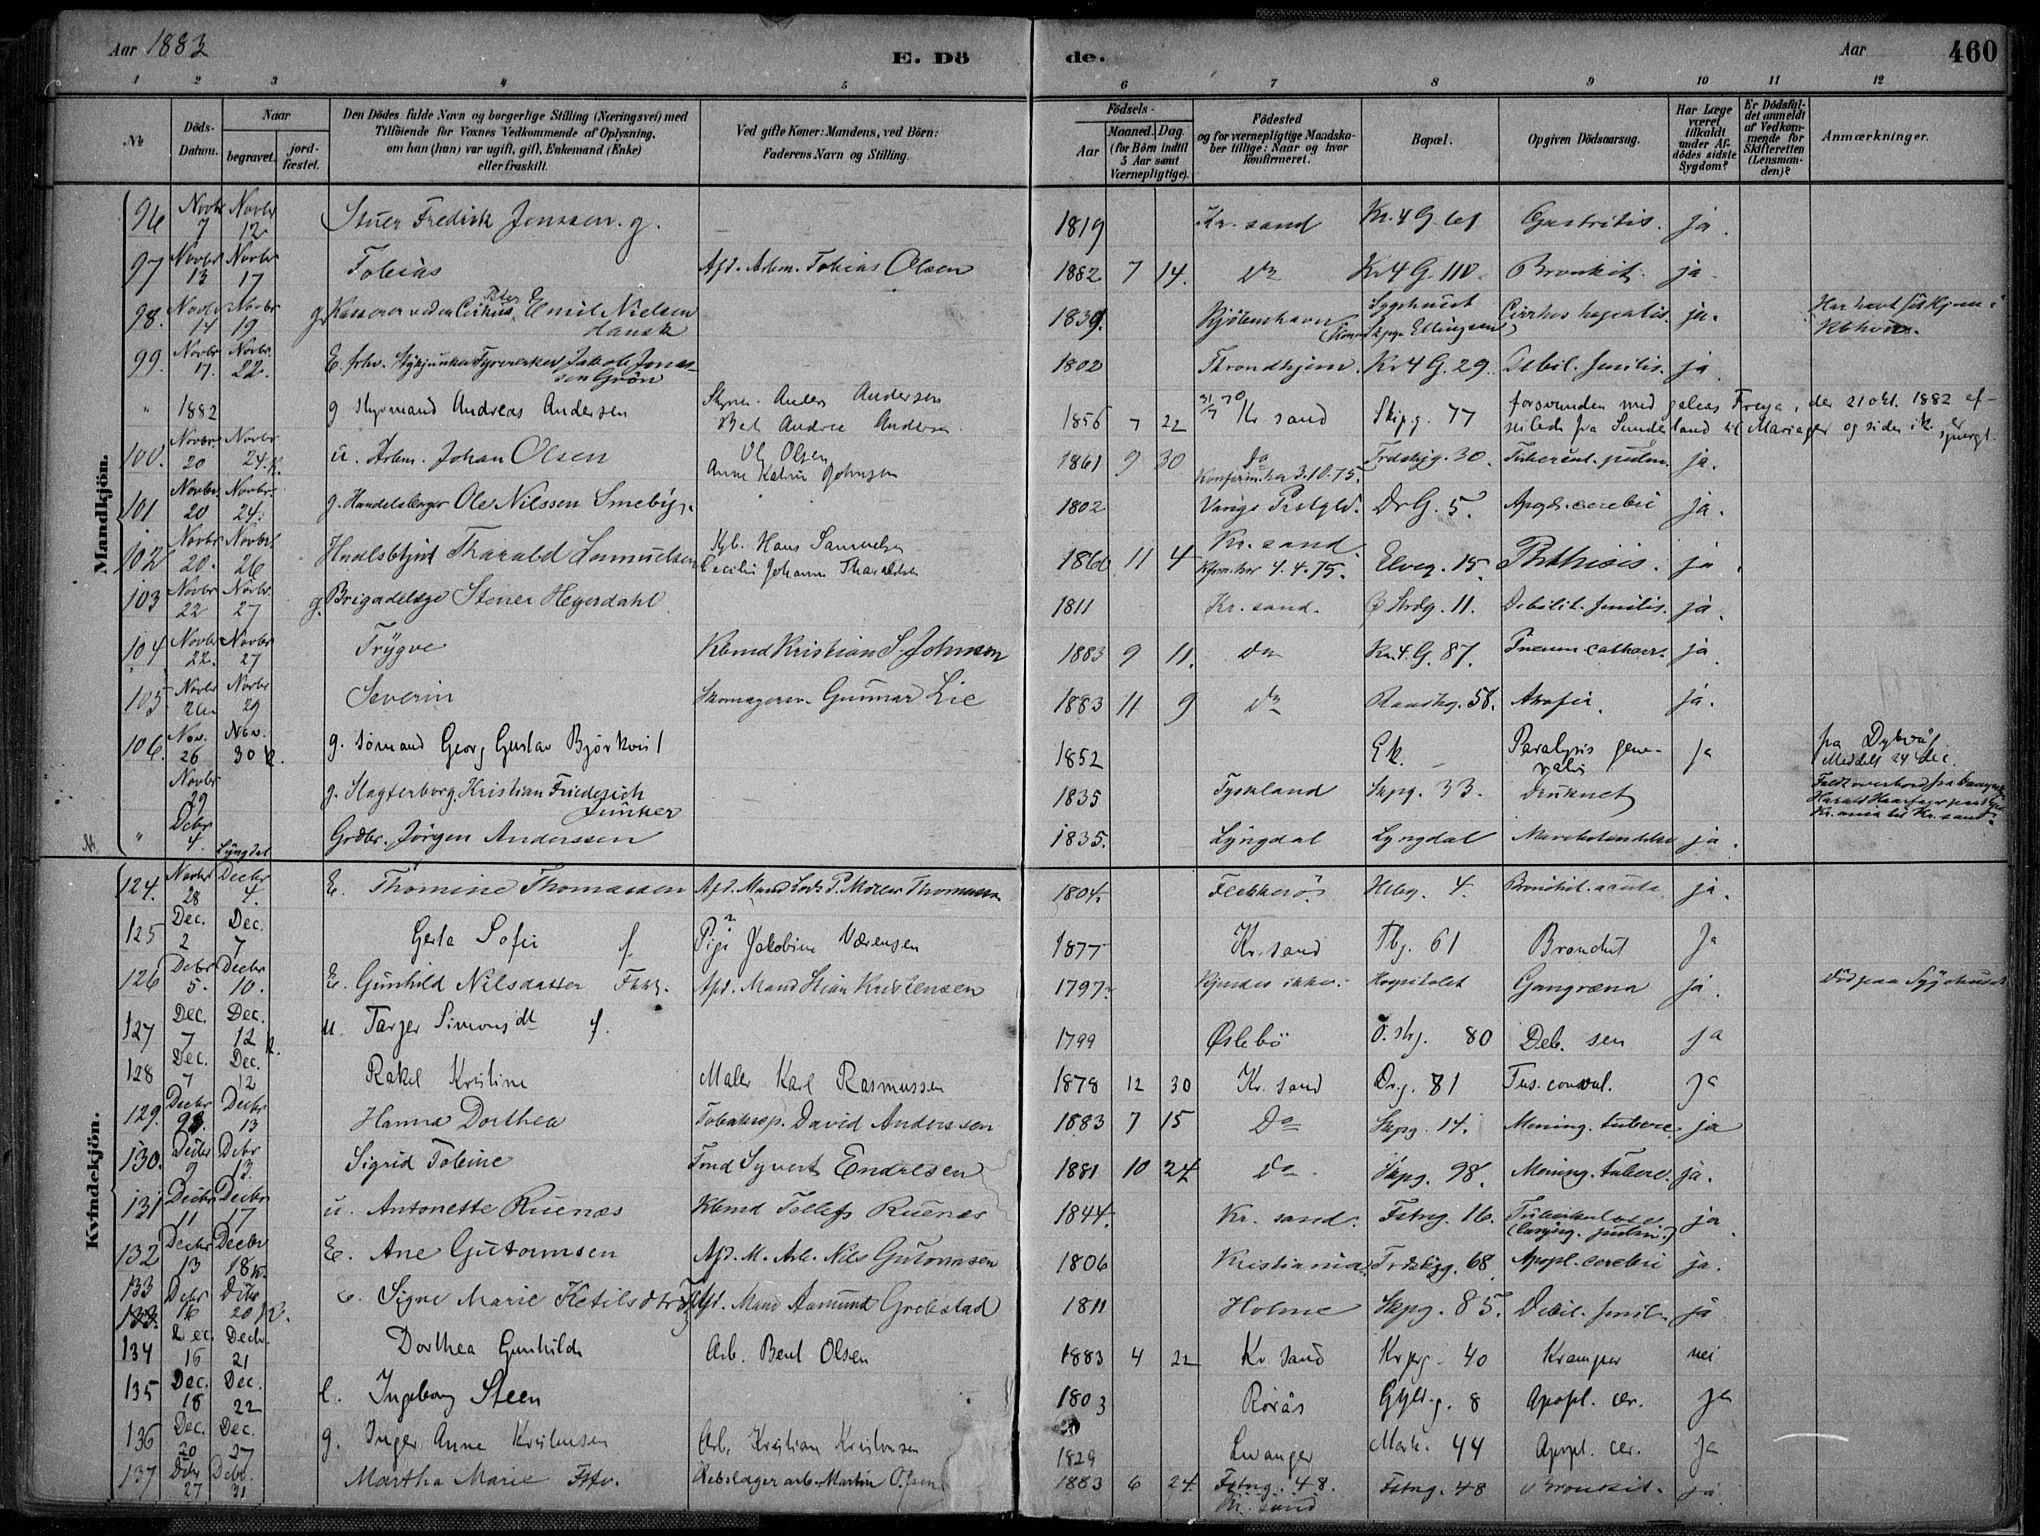 Aar 1883
E. Dö
de.
Aar
460
1 2 3 4 5 6 7 8 9 10 11 12
No
Döds-Datum.
Naar
begravet.
jord-fæstet.
Den Dödes fulde Navn og borgerlige Stilling (Næringsvei) med
Tilföiende for Voxnes Vedkommende af Oplysning,
om han (hun) var ugift, gift, Enkemand (Enke)
eller fraskilt.
Ved gifte Koner: Mandens, ved Börn:
Faderens Navn og Stilling.
Födsels-
Aar
Maaned. Dag.
(for Börn indtil
5 Aar samt
Værnepligtige).
Födested
og for værnepligtige Mandska-
ber tillige: Naar og hvor
konfirmeret.
Bopæl.
Opgiven Dödsaarsag.
Har Læge
været
tilkaldt
under Af-
dödes sidste
Sygdom?
Er Dödsfal-
det anmeldt
af Vedkom-
mende for
Skifteretten
(Lensman-
den)?
Anmærkninger.
Mandkjön.
96 Novbr 7 Novbr 12 Fredrik Jenssen. g. 1819 Kr. sand Kr. 4 G. 61 Gastritis. ja.
97 Novbr 13 Novbr 17 Tobias Afd. Arbm. Tobias Olsen 1882 7 14. Do Kr 4 G. 110 Bronkit. ja
98. Novbr 14 Novbr 19 g. Kasserer ved en Cirkus, Peter Emil Nielsen dansk 1839. Kjöbenhavn Sygehuset Cirrhos hepatis. ja.
99. Novbr. 17. Novbr. 22. E. Jakob Jonassen Grön 1802 Throndhjem Kr 4 G. 29. Debil. senilis. ja
" 1882 g Styrmand Andreas Andersen Anders Andersen 1856 7 22 Kr sand Skipg. 77 forsvunden med galeas Freya, der 21 okt. 1882 af-
seilede fra Sunderland til Mariager og siden ik. er spurgt.
100. Novbr 20 24. K. u. Arbm. Johan Olsen Ol. Olsen 1861 9 30 do Konfirm. her 3.10.75. 30. Tubercul. pulm. ja.
101 Novbr. 20 Novbr. 24. g. Handelsborger Ole Nilssen Smeby. 1802 Vangs Prstgld. Dr G. 5. Apopl. cerebri ja.
102 Novbr 20. Novbr. 26 Tharald Samuelsen Hans Samuelsen 1860 11 4 Kr. sand 4.4.75. Elveg. 15. Phthisis. ja
103 Novbr 22 Novbr. 27 g. Brigadelæge Stener Hegerdahl. 1811 Kr. sand. 11. Debilit. senilis. ja
104. Novbr 22. Novbr 27 Trygve Kbmd Kristian S. Johnson 1883 9 11. Do Kr. 4. G. 87. Pneum. catharr. ja
105 Novbr 26 Novbr 29 Severin Skomagersv. Gunnar Lie 1883 11 9 Do 58. Atrofie. ja.
106. Nov. 26 Nov. 30 K. g. Sømand Georg Gustav Bjørkvist 1852 Gk. Paralysis generalis ja fra Dybvåg. Meddelt 24 dec.
Novbr 29 g. Kristian Friederich Junker 1835 Tyskland Skpg. 33. Druknet
" Debr 4. Lyngdal Grdbr. Jörgen Anderssen 1835. Lyngdal Lyngdal ja.
Kvindekjön.
124. Novbr 28 Decbr 4. E. Thomine Thomassen Afd. Mand Lods P. Thomassen 1804. Flekkerö. 4. Bronkit. acuta ja.
125 Dec. 2 Dec. 7 Gerta Sofie f. Pige Jakobine Værensen 1877 Kr. sand Tbg. 61 Brændt Ja
126 Debr 5. Decbr 10. E. Gunhild Nilsdatter Afd. Mand Stian Kristensen 1797. Kjendes ikke. Hospitalet Gangræna ja. Död paa Sygehuset
127 Dec. 7 Dec. 12 K. u. Tarjer Simonsdt f. 1799 Øslebö 80 Deb. sen ja
128 Dec. 7 Dec. 12 Rakel Kristine Maler Karl Rasmussen 1878 12 30 Kr. sand Drg. 81 Tus. convul. ja
129. Decbr 9. Decbr 13 Hanna Dorthea David Anderssen 1883 7 15 Do Skpg. 14. Mening. tuberc. ja
130. Decbr 9 Debr 13. Sigrid Tobine Syvert Endresen 1881 10 24 Do Skpg. 98. Mening. tuberc. ja.
131 Decbr 11 Decbr 17 u. Antonette Ruenæs Kbmd Tellefs Ruenæs 1844. Kr. sand. Fstng. 16. ja
132 Decbr 13 Decbr 18 K. E. Ane Gutormsen Afd. M. Arb. Nils Gutormsen 1806 Kristiania. 68 Apopl. cerebri ja.
133 Debr 16 Debr 20 K. E. Signe Marie Ketilsdtr Afd. Mand Aamund Grebstad 1811 Holme Skpg. 85. Debil. senil. ja
134 Dec. 16 Decbr. 21 Dorthea Gunhilde Arb. Bent Olsen 1883 4 22 Kr. sand 40 Kramper nei
135 Dec. 18 Dec. 22 E. Ingeborg Steen 1803 Rörås Gyld. g. 8 Apopl. cer. ja
136 Dec. 20 Dec. 27 g. Inger Anne Kristensen Arb. Kristian Kristensen 1829 Levanger Mark. 44 Apopl. cer. ja
137 Debr 27 Debr. 31 Martha Marie Rebslagerarb. Martin Olsen 1883 6 24 Fstng. 48. Kr. sand Fstng. 48 Bronkit. ja